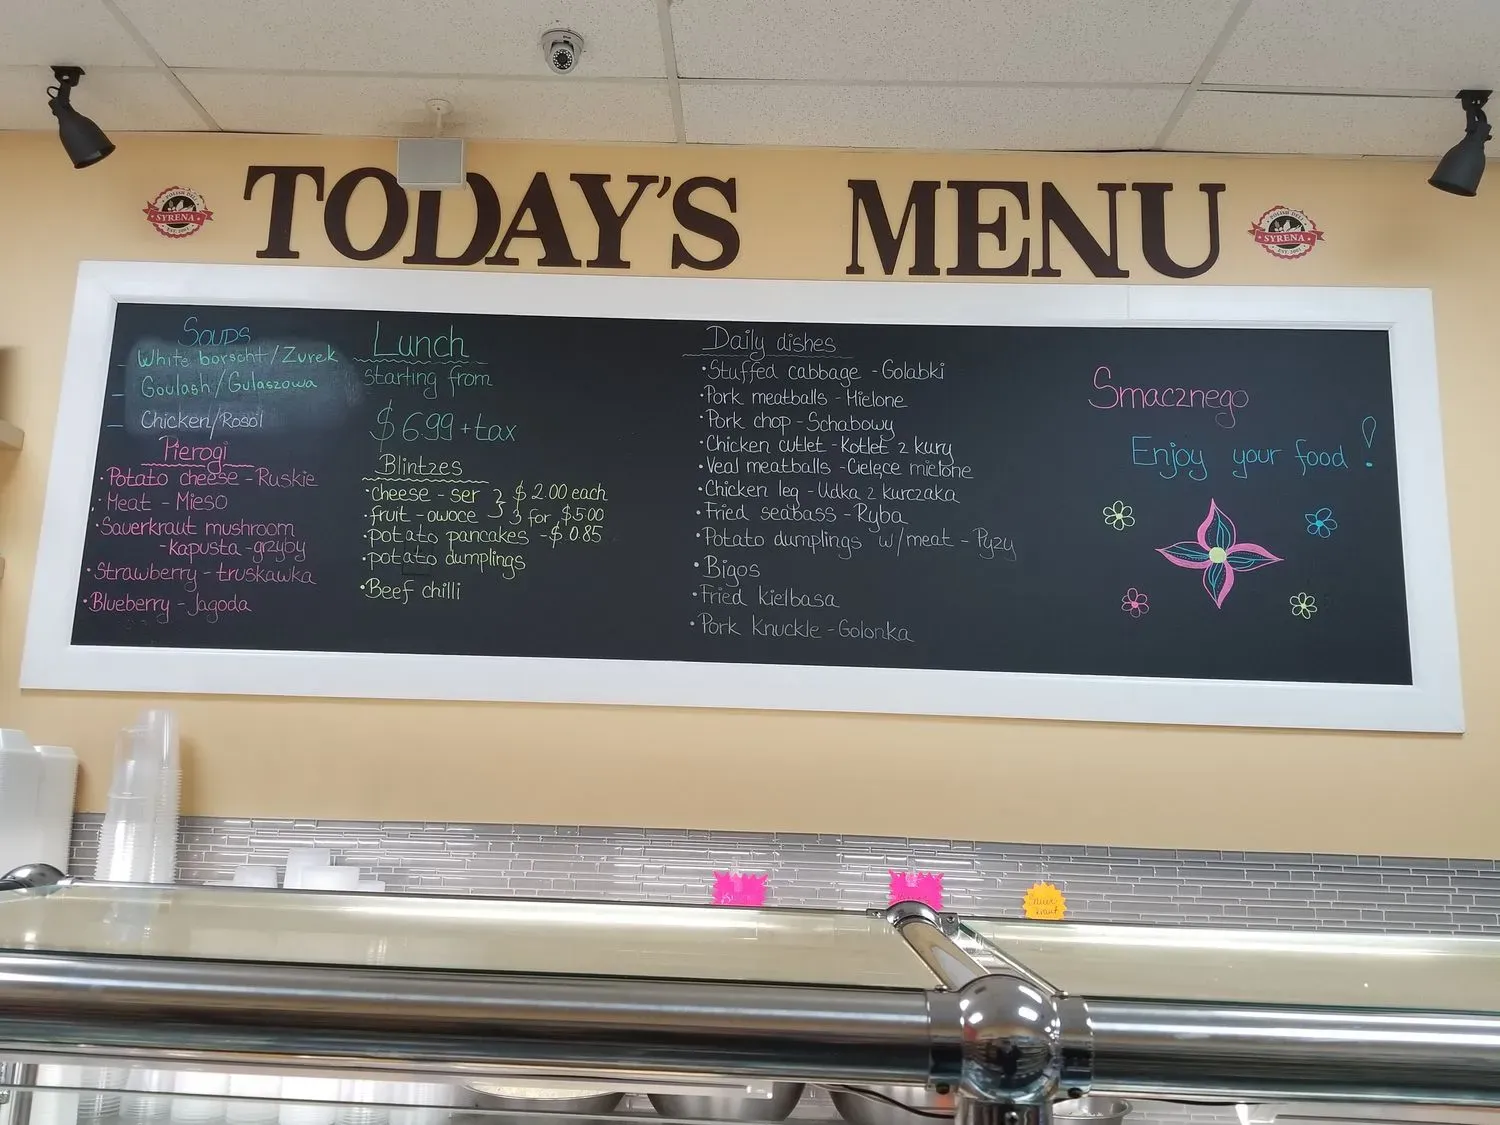 TODAY'S MENU
POLISH DELI
SYRENA
POLISH DELI
SYRENA
Soups
White borscht/Zurek
Goulash/Gulaszowa
Chicken/Rosół
Pierogi
• Potato cheese - Ruskie
• Meat - Mieso
• Sauerkraut mushroom
- kapusta - grzyby
• Strawberry - truskawka
• Blueberry - Jagoda
Lunch
starting from
$6.99 + tax
Blintzes
• cheese - ser } $2.00 each
• fruit - owoce } 3 for $5.00
• potato pancakes - $0.85
• potato dumplings
• Beef chilli
Daily dishes
• Stuffed cabbage - Golabki
• Pork meatballs - Mielone
• Pork chop - Schabowy
• Chicken cutlet - Kotlet z kury
• Veal meatballs - Cielęce mielone
• Chicken leg - Udka z kurczaka
• Fried seabass - Ryba
• Potato dumplings w/meat - Pyzy
• Bigos
• Fried kielbasa
• Pork Knuckle - Golonka
Smacznego
Enjoy your food!